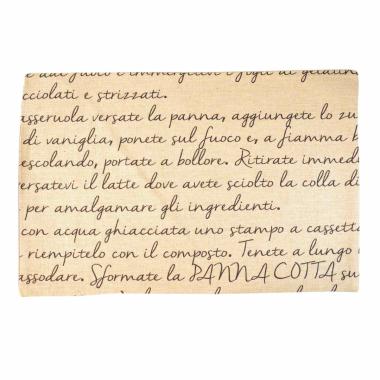 e dal fuoco e immergetevi i fogli di gelatin
cciolati e strizzati.
asseruola versate la panna, aggiungete lo zu
di vaniglia, ponete sul fuoco e, a fiamma b
escolando, portate a bollore. Ritirate immed
ersatevi il latte dove avete sciolto la colla di
per amalgamare gli ingredienti.
con acqua ghiacciata uno stampo a cassetta
riempitelo con il composto. Tenete a lungo
assodare. Sformate la PANNA COTTA su